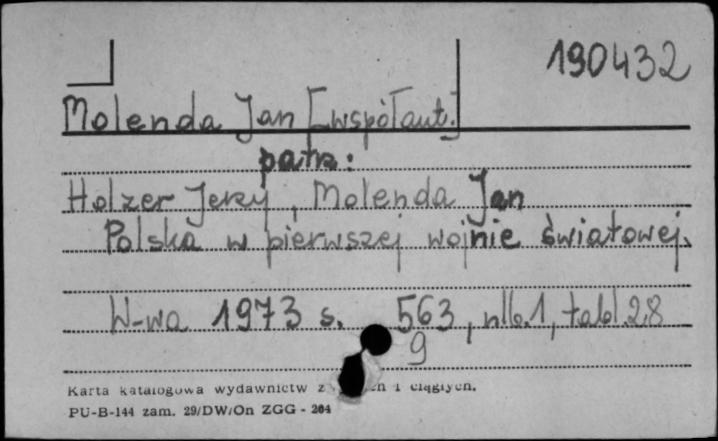 190432
Molenda Jan [współaut.]
patrz:
Holzer Jerzy, Molenda Jan
Polska w pierwszej wojnie światowej.
W-wa 1973 s. 563, nlb.1, tabl.28
9
Karta katalogowa wydawnictw i ciągłych.
PU-B-144 zam. 29/DW/On ZGG - 204